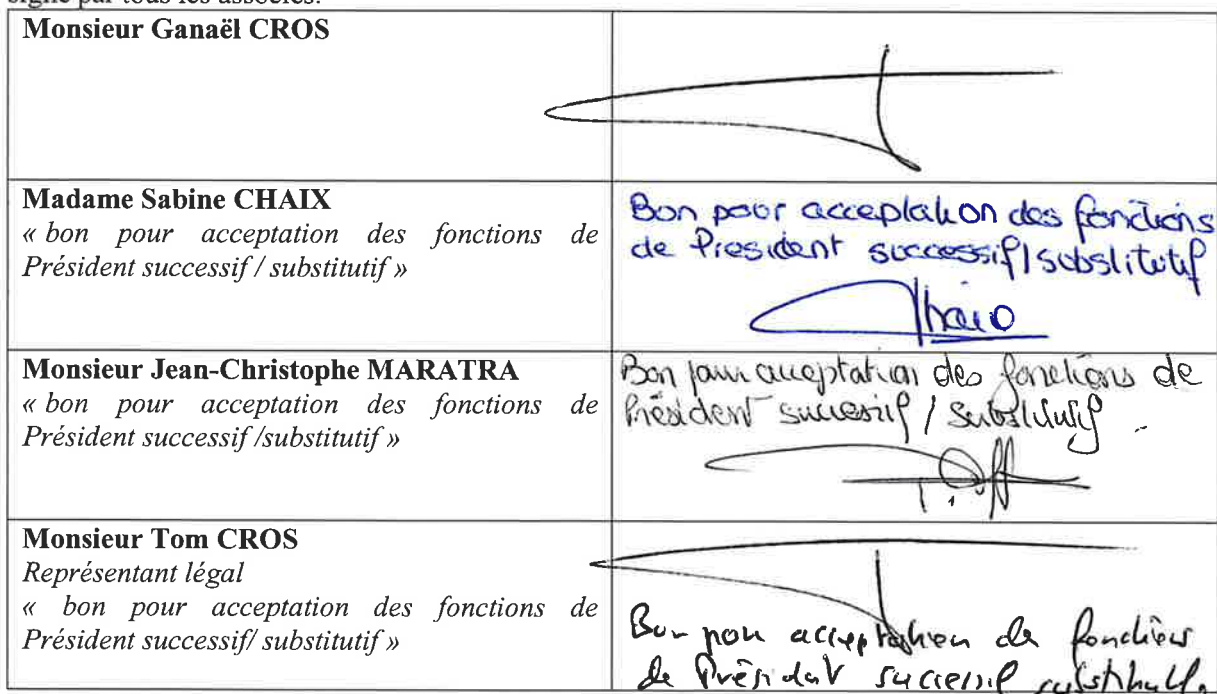 signé par tous les associés.
Monsieur Ganaël CROS
Madame Sabine CHAIX
« bon pour acceptation des fonctions de
Président successif / substitutif »
Bon pour acceptation des fonctions
de President successif/substitutif
Monsieur Jean-Christophe MARATRA
« bon pour acceptation des fonctions de
Président successif /substitutif »
Bon pour acceptation des fonctions de
Président successif / substitutif
Monsieur Tom CROS
Représentant légal
« bon pour acceptation des fonctions de
Président successif/ substitutif »
Bon pour acceptation de fonctions
de Président successif substitutif